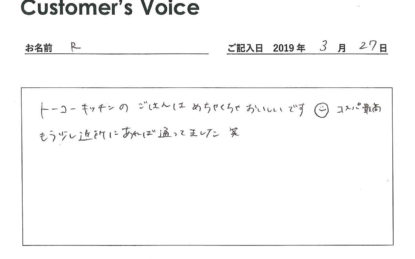 Customer's Voice
お名前 R ご記入日 2019年 3月 27日
トーコーキッチンの ごはんは めちゃくちゃ おいしいです ☺ コスパ最高
もう少し近所にあれば通ってました 笑